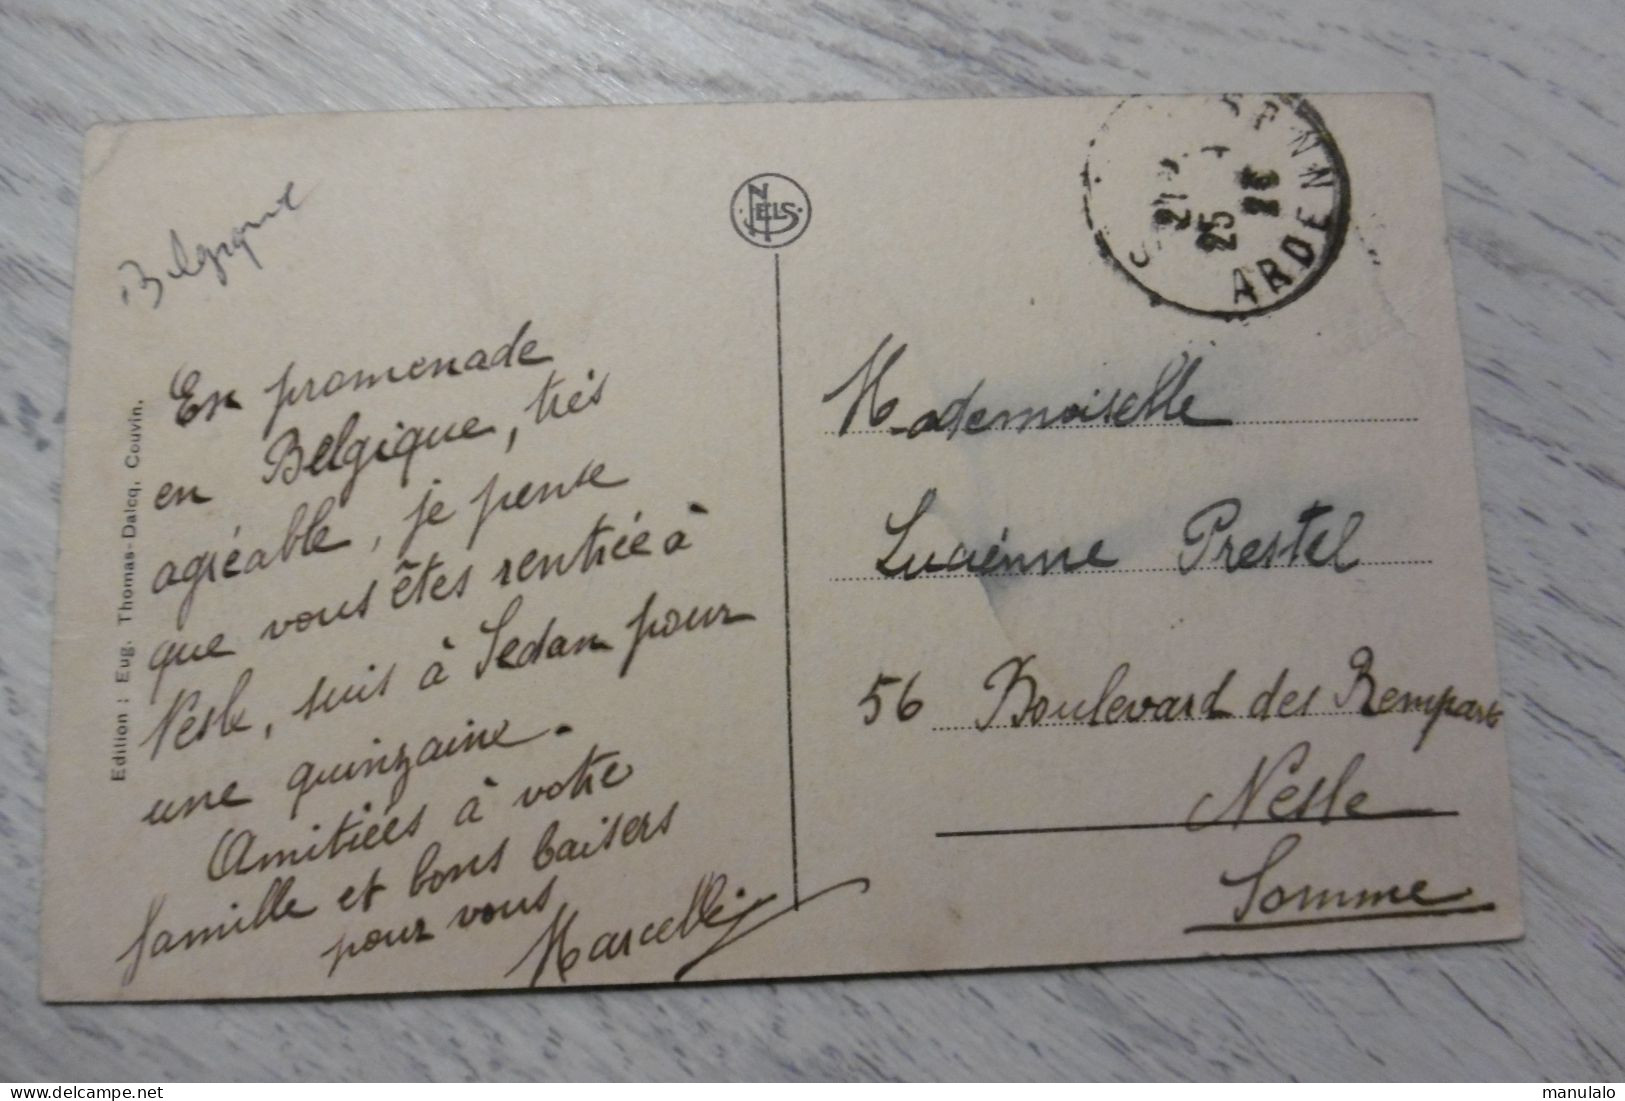 Belgique
En promenade
en Belgique, très
agréable, je pense
que vous êtes rentrée à
Nesle, suis à Sedan pour
une quinzaine.
Amitiées à votre
famille et bons baisers
pour vous
Marcelle
Edition : Eug. Thomas-Dalcq, Couvin.
NELS
25
ARDENN
Mademoiselle
Lucienne Prestel
56 Boulevard des Remparts
Nesle
Somme
manulalo